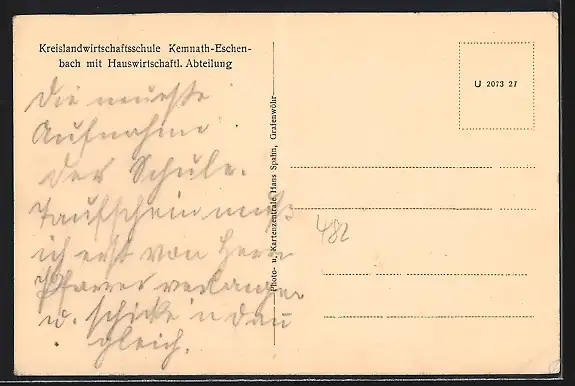 Kreislandwirtschaftsschule Kemnath-Eschen-
bach mit Hauswirtschaftl. Abteilung
Die neueste
Aufnahme
der Schule.
Taufschein muß
ich erst von Herrn
Pfarrer verlangen
u. schicke n dau
gleich.
Photo- u. Kartenzentrale Hans Spahn, Grafenwöhr
U 2073 27
482